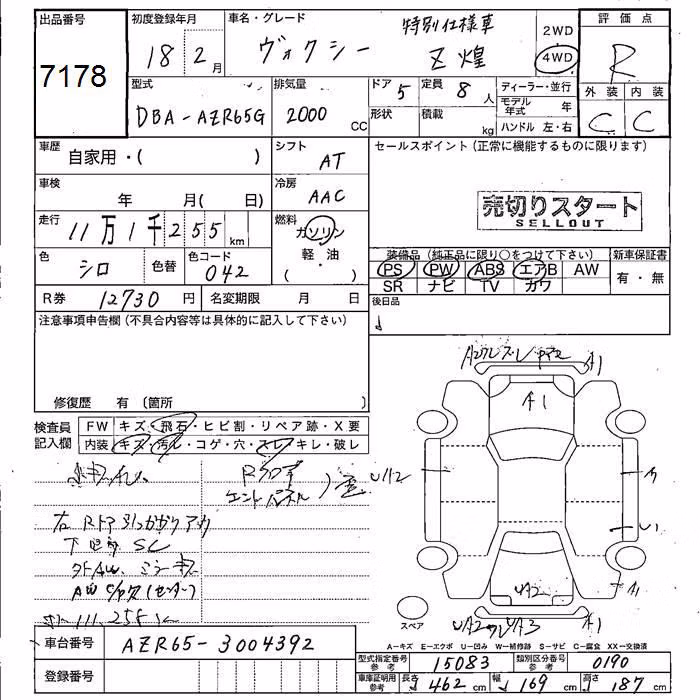 出品番号 7178
初度登録年月 18年2月
車名・グレード ヴォクシー 特別仕様車 Z煌
2WD
4WD
評価点 R
外装 C 内装 C
型式 DBA-AZR65G
排気量 2000 CC
ドア 5 定員 8人
形状 積載 kg
ディーラー・並行
モデル年式 年
ハンドル 左・右
車歴 自家用・( )
シフト AT
セールスポイント(正常に機能するものに限ります)
車検 年 月( 日)
冷房 AAC
売切りスタート
SELLOUT
走行 11万1千255km
燃料 ガソリン 軽・油 ( )
色 シロ 色替 色コード 042
装備品(純正品に限り○をつけて下さい) 新車保証書
PS PW ABS エアB AW 有・無
SR ナビ TV カワ
R券 12730円 名変期限 月 日
後日品
注意事項申告欄(不具合内容等は具体的に記入して下さい)
修復歴 有(箇所 )
検査員記入欄
FW キズ・飛石・ヒビ割・リペア跡・X要
内装 キズ・汚れ・コゲ・穴・スレ・キレ・破レ
A1
A1
U1
A1
UA2
A1
スペア
A-キズ E-エクボ U-凹み W-補修跡 S-サビ C-腐食 XX-交換済
車台番号 AZR65-3004392
登録番号
型式指定番号参考 15083 類別区分番号参考 0190
車庫証明用参考 長さ 462cm 幅 169cm 高さ 187cm